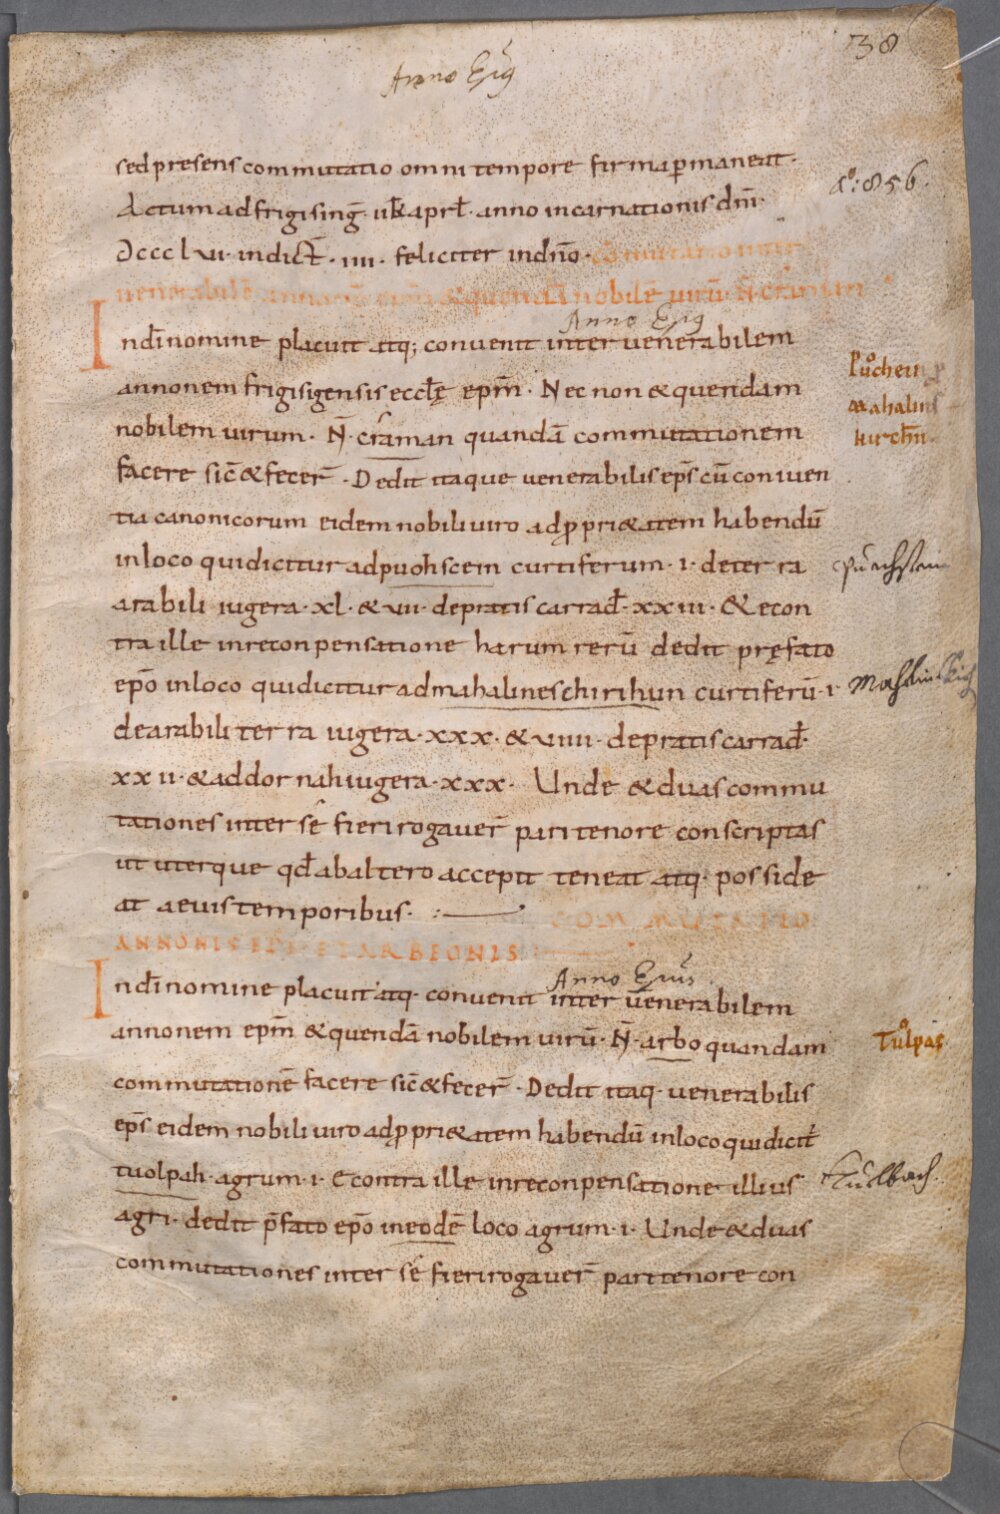 38
Anno Epis
sed presens commutatio omni tempore firma ꝑmaneat·
Actum ad frigising̅· v k̅ apr̅l· anno incarnationis dn̅i·
Dccclvi· indict̅· iiii· feliciter in dn̅o· commutatio inter
A°: 856.
venerabilē annonē epm̅ & quendā nobilē virū· N̅· craman
Anno Epis
In dī nomine placuit atq; convenit inter venerabilem
annonem frigisigensis eccl̅ę epm̅· Nec non & quendam
Půchein
nobilem virum· N̅· craman quandā commutationem
mahalins
kirch̅n·
facere sic̅ & fecer̅· Dedit itaque venerabilis ep̅s cū coniven
tia canonicorum eidem nobili viro ad ꝓpri&atem habendū
in loco qui dicitur ad puohscem curtiferum· i· de terra
arabili iugera· xl· & vii· de pratis carrad̅· xxiii· & econ
tra ille in reconpensatione harum rerū dedit pręfato
ep̅o in loco qui dicitur ad mahalineschirihun curtiferū· i·
de arabili terra iugera· xxx· & viiii· de pratis carrad̅·
xxii· & ad dornah iugera· xxx· Unde & duas commu
tationes inter se fieri rogaver̅ pari tenore conscriptas
ut uterque qd̅ ab altero accepit teneat atq· posside
at aevis temporibus· COMMUTATIO
ANNONIS EPI· ET ARBEONIS
Anno Epis
In dī nomine placuit atq· convenit inter venerabilem
annonem epm̅ & quendā nobilem virū· N̅· arbo quandam
Tůlpac
commutationē facere sic̅ & fecer̅· Dedit itaq· venerabilis
ep̅s eidem nobili viro ad ꝓpri&atem habendū in loco qui dicit̅
tuolpah· agrum· i· Econtra ille in reconpensatione illius
agri· dedit p̅fato ep̅o in eodē loco agrum· i· Unde & duas
commutationes inter se fieri rogaver̅ pari tenore con